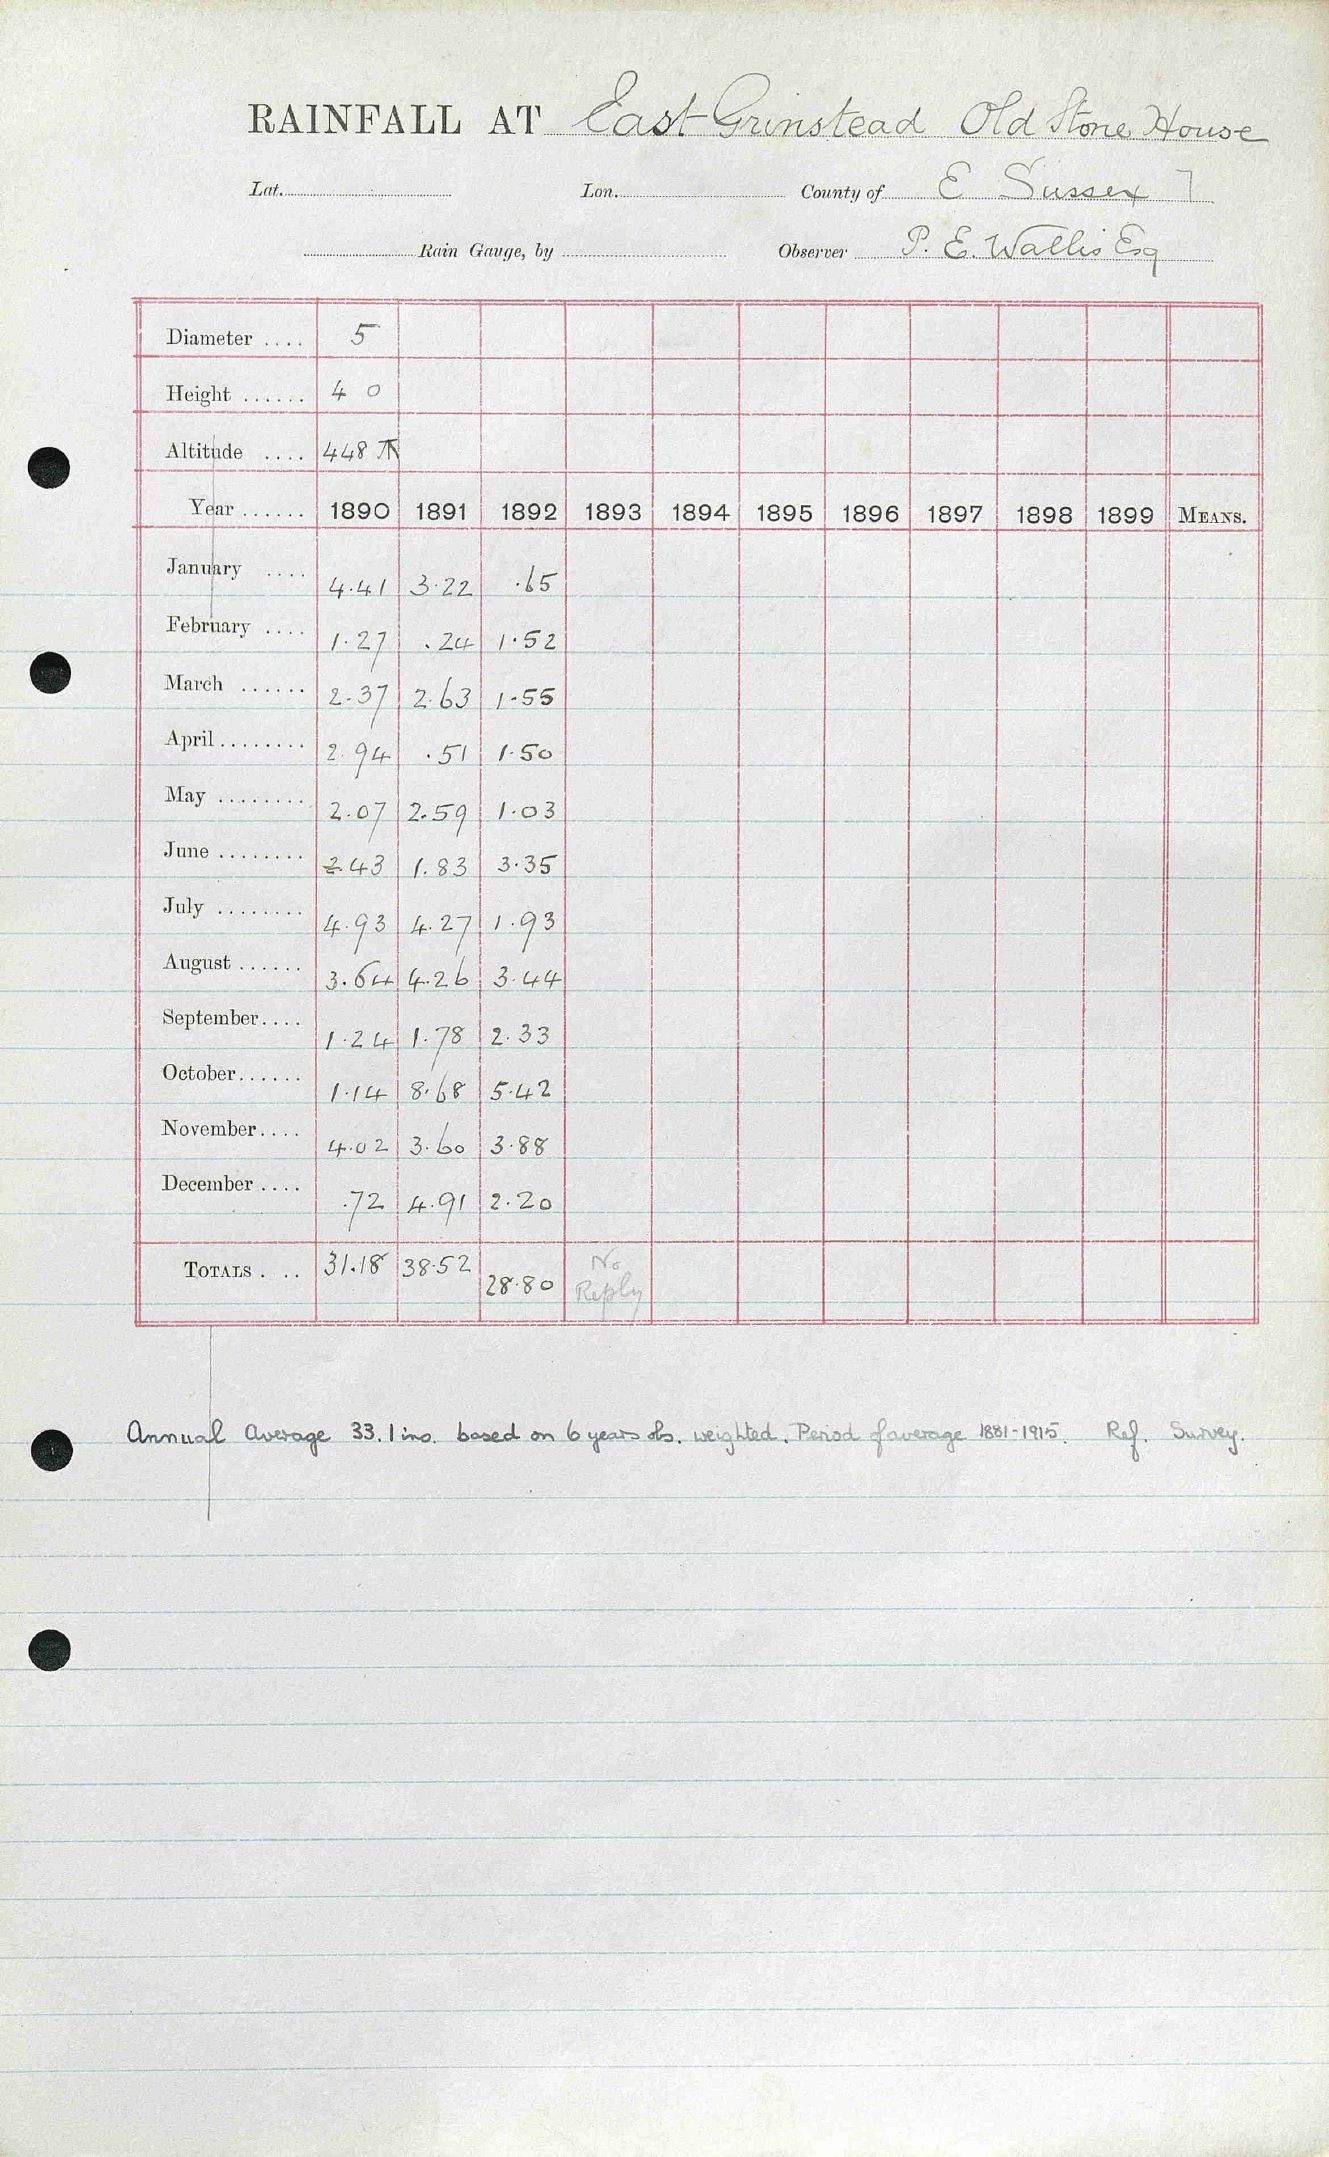 RAINFALL AT East Grinstead Old Stone House
Lat. Lon. County of E Sussex 7
Rain Gauge, by Observer P. E. Wallis Esq
Diameter .... 5
Height ...... 4 0
Altitude .... 448 T
Year ...... 1890 1891 1892 1893 1894 1895 1896 1897 1898 1899 MEANS.
January .... 4.41 3.22 .65
February .... 1.27 .24 1.52
March ...... 2.37 2.63 1.55
April ........ 2.94 .51 1.50
May ........ 2.07 2.59 1.03
June ........ 2.43 1.83 3.35
July ........ 4.93 4.27 1.93
August ...... 3.64 4.26 3.44
September.... 1.24 1.78 2.33
October...... 1.14 8.68 5.42
November.... 4.02 3.60 3.88
December .... .72 4.91 2.20
TOTALS . .. 31.18 38.52 28.80 No Reply
Annual Average 33.1 ins. based on 6 years obs. weighted. Period of average 1881-1915. Ref. Survey.